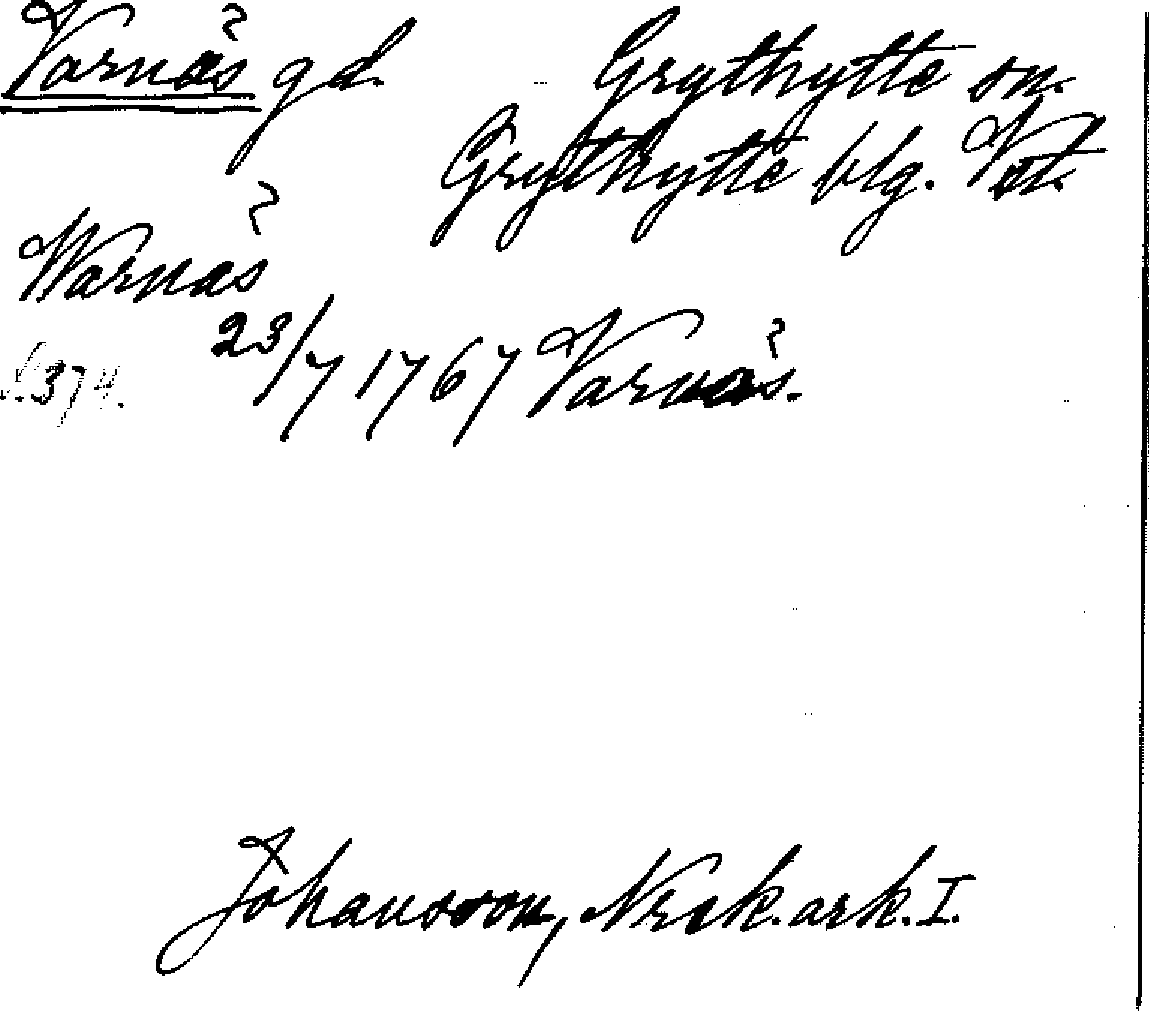 Varnäs gd. Grythytte sn.
Grythytte blg. Vst.
Warnäs
s.374. 23/7 1767 Varnäs.
Johansson, Nrck. ark. I.